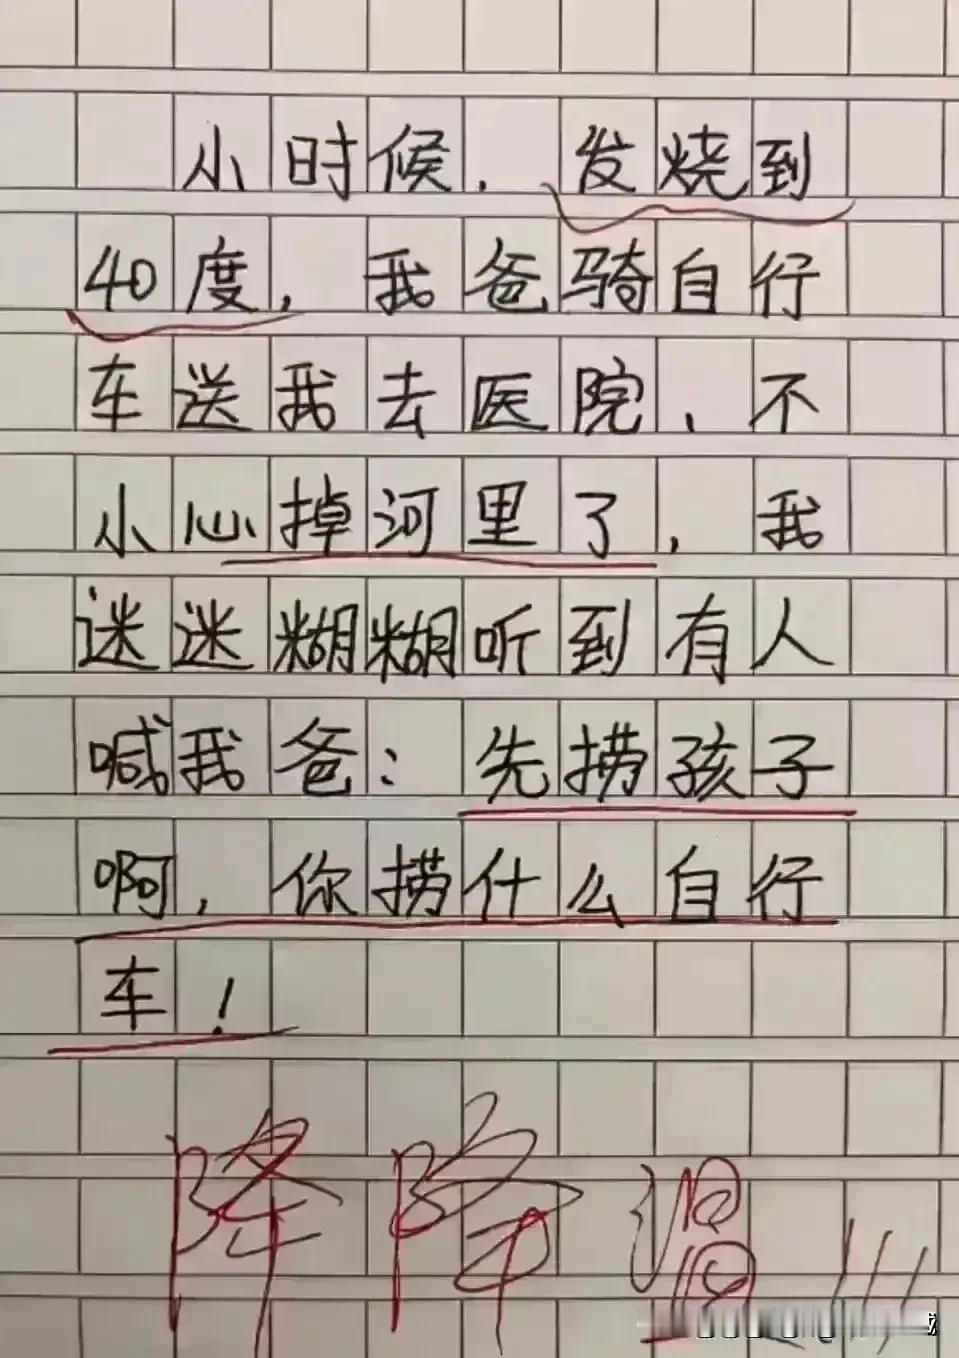 小时候，发烧到
40度，我爸骑自行
车送我去医院，不
小心掉河里了，我
迷迷糊糊听到有人
喊我爸：先捞孩子
啊，你捞什么自行
车！
降降温!!!